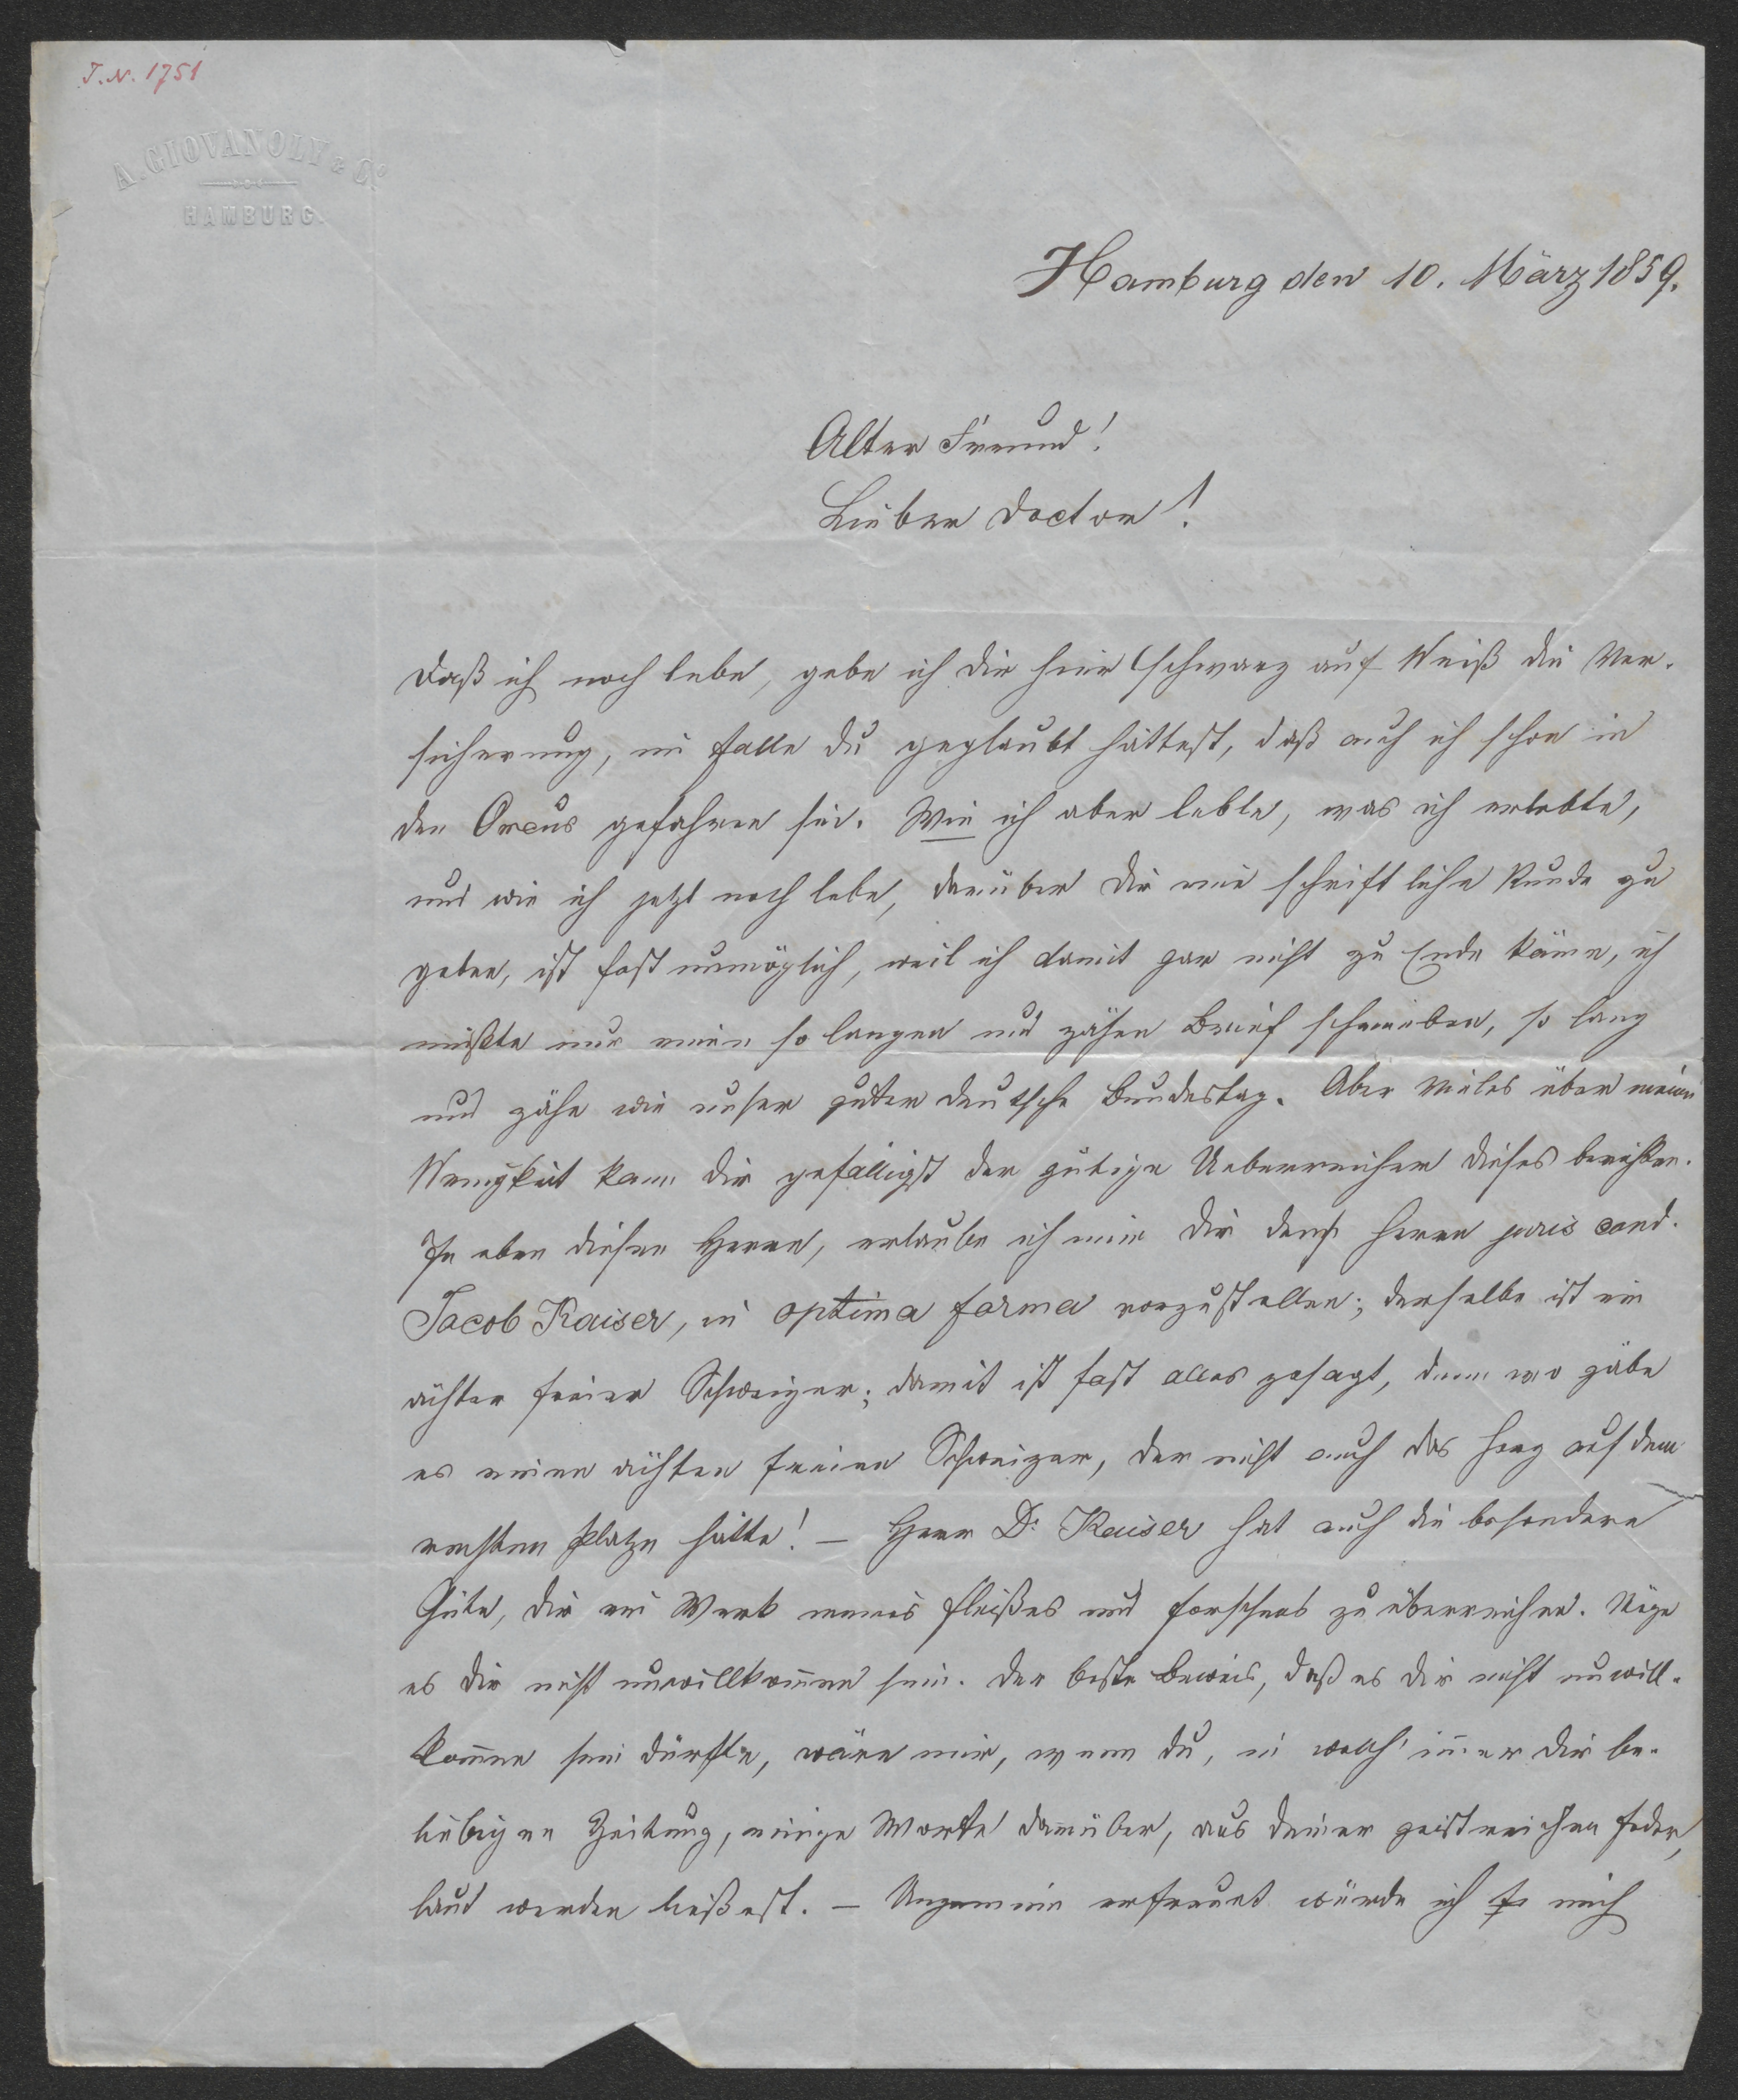 J.N. 1751
A. GIOVANOLY & Co
HAMBURG.
Hamburg den 10. März 1859.
Alter Freund!
Lieber Doctor!
Daß ich noch lebe, gebe ich Dir hier schwarz auf Weiß die Ver-
sicherung, im Falle Du geglaubt hättest, daß auch ich schon in
den Orcus gefahren sei. Wie ich aber lebte, was ich erlebte,
und wie ich jetzt noch lebe, darüber Dir eine schriftliche Kunde zu
geben, ist fast unmöglich, weil ich damit gar nicht zu Ende käme, ich
müßte nur einen so langen und zähen Brief schreiben, so lang
und zähe wie unser guter deutsche Bundestag. Aber Vieles über meine
Wenigkeit kann Dir gefälligst der gütige Ueberreicher dieses berichten.
In eben diesen Herrn, erlaube ich mir Dir den Herrn juris cand.
Jacob Kaiser, in optima forma vorzustellen; derselbe ist ein
ächter freier Schweizer; damit ist fast alles gesagt, denn wo gäbe
es einen ächten freien Schweizer, der nicht auch das Herz auf dem
rechten Platze hätte! – Herr Dr Kaiser hat auch die besondere
Güte, Dir ein Werk meines Fleißes und Forschens zu überreichen. Möge
es Dir nicht unwillkom̄en sein. Der beste Beweis, daß es Dir nicht unwill-
kom̄en sein dürfte, wäre mir, wenn Du, in welch' im̄er Dir be-
liebigen Zeitung, einige Worte darüber, aus Deiner geistreichen Feder,
laut werden ließest. – Ungemein erfreuet würde ich mich